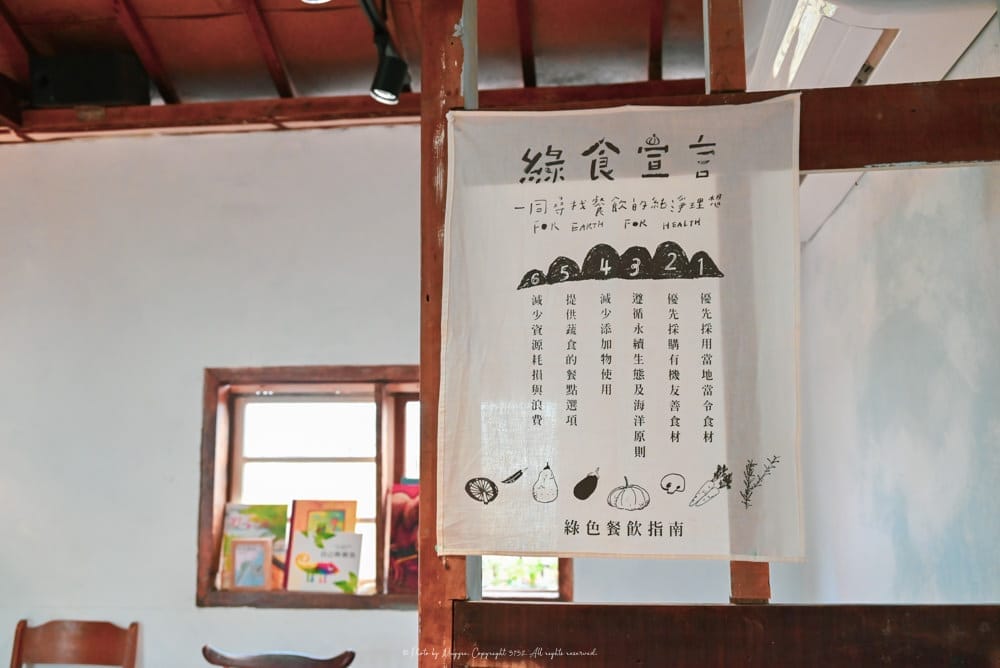 綠食宣言
一同尋找餐飲的純淨理想
FOR EARTH FOR HEALTH
1 優先採用當地當令食材
2 優先採購有機友善食材
3 遵循永續生態及海洋原則
4 減少添加物使用
5 提供蔬食的餐點選項
6 減少資源耗損與浪費
綠色餐飲指南
© Photo by Maggie. Copyright 5752. All rights reserved.